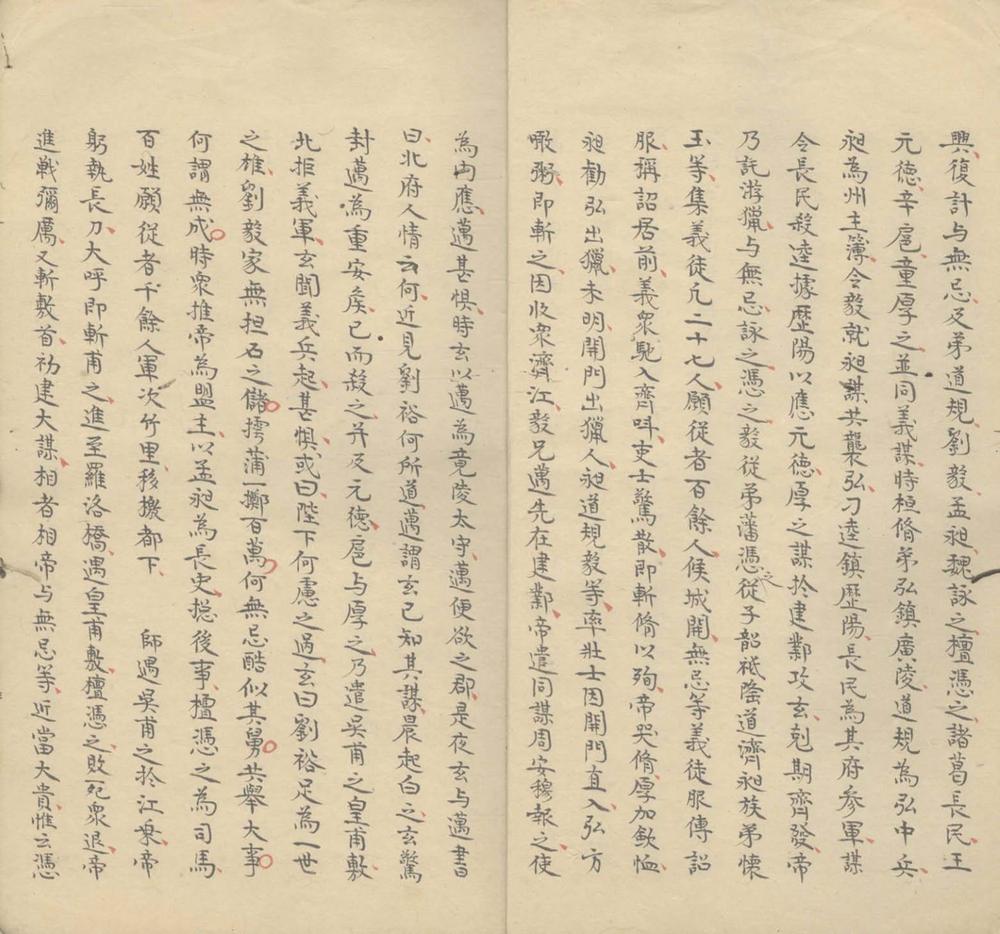 興復計与無忌及弟道規劉毅孟昶魏詠之檀憑之諸葛長民王
元徳辛扈童厚之並同義謀時桓脩弟弘鎮廣陵道規為弘中兵
昶為州主簿令毅就昶謀共襲弘刁逵鎮歷陽長民為其府參軍謀
令長民殺逵據歷陽以應元徳厚之謀於建鄴攻玄剋期齊發帝
乃託游獵与無忌詠之憑之毅從弟藩憑之從子韶祗隆道濟昶族弟懷
玉等集義徒凢二十七人願從者百餘人候城開無忌等義徒服傳詔
服稱詔居前義衆馳入齊呌吏士驚散即斬脩以殉帝哭脩厚加歛恤
昶勸弘出獵未明開門出獵人昶道規毅等率壯士因開門直入弘方
噉粥即斬之因收衆濟江毅兄邁先在建鄴帝遣同謀周安穆報之使
為内應邁甚惧時玄以邁為竟陵太守邁便欲之郡是夜玄与邁書
曰北府人情云何近見劉裕何所道邁謂玄已知其謀晨起白之玄驚
封邁為重安矦已而殺之并及元徳扈与厚之乃遣吴甫之皇甫敷
北拒義軍玄聞義兵起甚惧或曰陛下何慮之過玄曰劉裕足為一世
之雄劉毅家無担石之儲摴蒲一擲百萬何無忌酷似其舅共舉大事
何謂無成時衆推帝為盟主以孟昶為長史揔後事檀憑之為司馬
百姓願從者千餘人軍次竹里移檄都下 師遇吴甫之於江乗帝
躬執長刀大呼即斬甫之進至羅洛橋遇皇甫敷檀憑之敗死衆退帝
進戰彌厲又斬敷首初建大謀相者相帝与無忌等近當大貴惟云憑